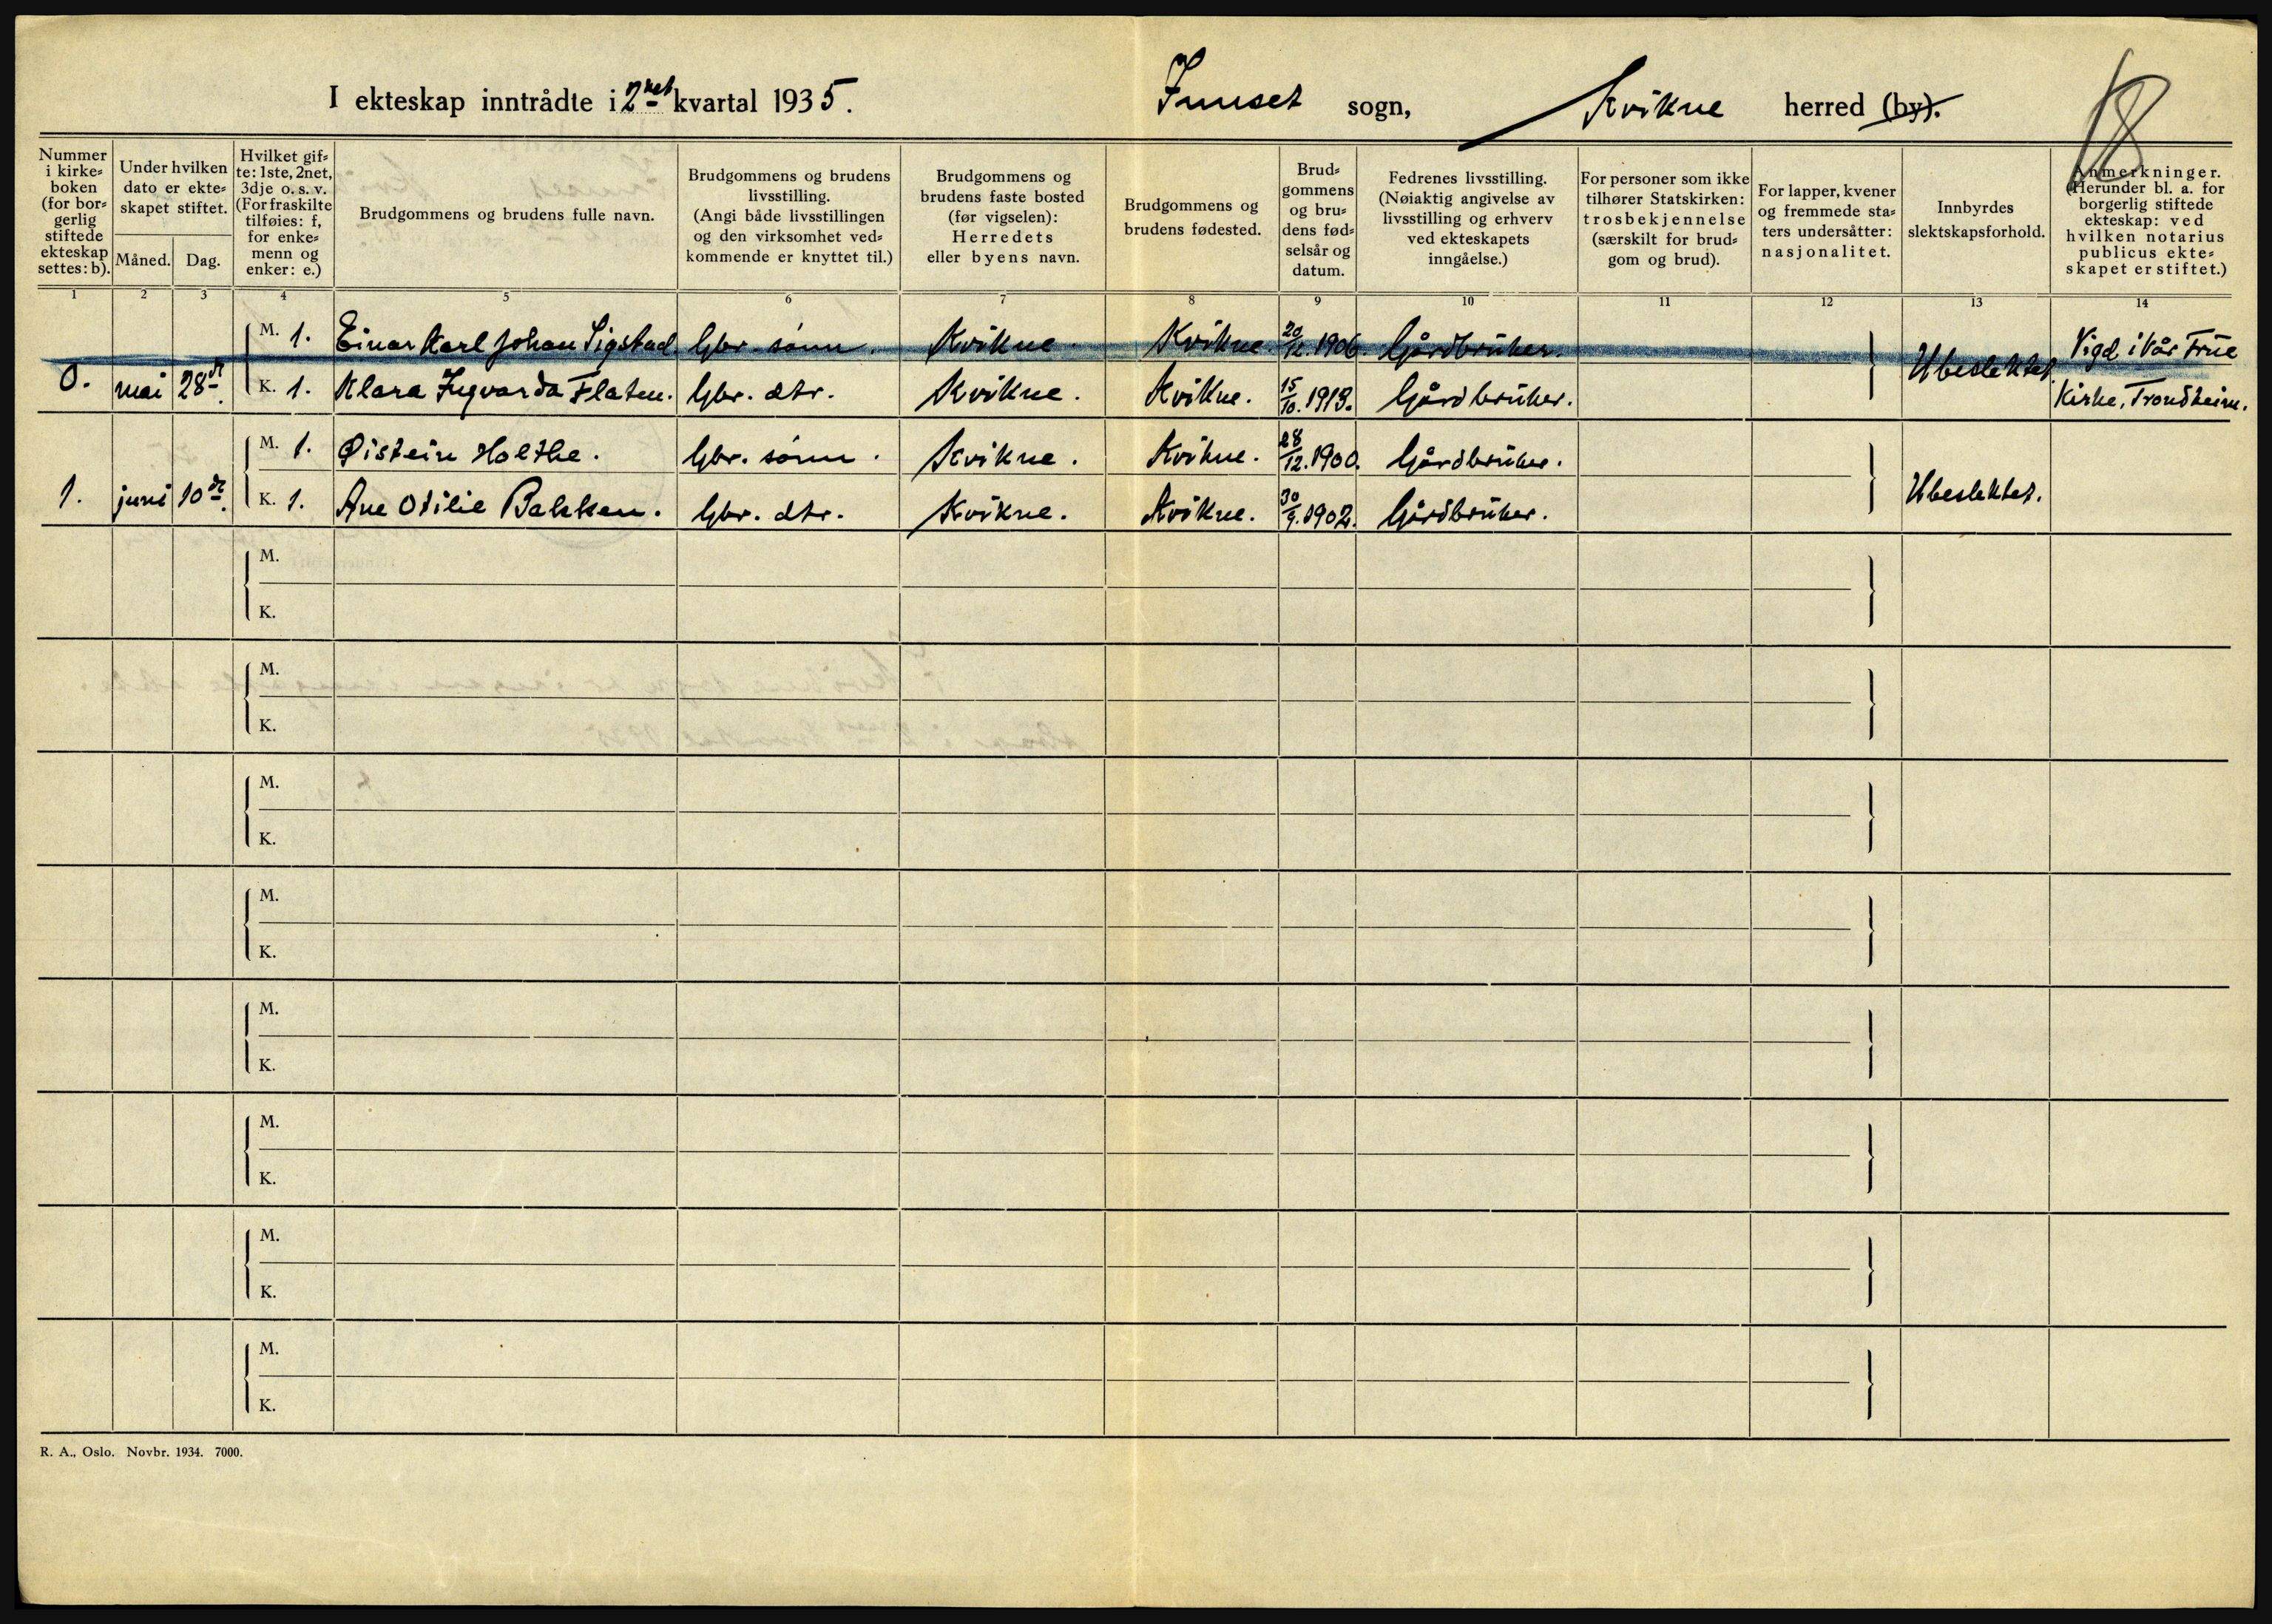 I ekteskap inntrådte i 2net kvartal 1935. Innset sogn, Kvikne herred (by).
18
Nummer i kirke=boken (for bor=gerlig stiftede ekteskap settes: b).
Under hvilken dato er ekte=skapet stiftet.
Måned. Dag.
Hvilket gif=te: 1ste, 2net, 3dje o. s. v. (For fraskilte tilføies: f, for enke=menn og enker: e.)
Brudgommens og brudens fulle navn.
Brudgommens og brudens livsstilling. (Angi både livsstillingen og den virksomhet ved=kommende er knyttet til.)
Brudgommens og brudens faste bosted (før vigselen): Herredets eller byens navn.
Brudgommens og brudens fødested.
Brud=gommens og bru=dens fød=selsår og datum.
Fedrenes livsstilling. (Nøiaktig angivelse av livsstilling og erhverv ved ekteskapets inngåelse.)
For personer som ikke tilhører Statskirken: trosbekjennelse (særskilt for brud=gom og brud).
For lapper, kvener og fremmede sta=ters undersåtter: nasjonalitet.
Innbyrdes slektskapsforhold.
Anmerkninger. (Herunder bl. a. for borgerlig stiftede ekteskap: ved hvilken notarius publicus ekte=skapet er stiftet.)
1 2 3 4 5 6 7 8 9 10 11 12 13 14
M. 1. Einar Karl Johan Sigstad. Gbr. sønn. Kvikne. Kvikne. 20/12. 1906. Gårdbruker. Vigd i Vår Frue
0. mai 28de. K. 1. Klara Ingvarda Flaten. Gbr. dtr. Kvikne. Kvikne. 15/10. 1913. Gårdbruker. Ubeslektet. Kirke, Trondheim.
M. 1. Øistein Holthe. Gbr. sønn. Kvikne. Kvikne. 28/12. 1900. Gårdbruker.
1. juni 10de. K. 1. Ane Otilie Bakken. Gbr. dtr. Kvikne. Kvikne. 30/9. 1902. Gårdbruker. Ubeslektet.
M.
K.
M.
K.
M.
K.
M.
K.
M.
K.
M.
K.
M.
K.
M.
K.
R. A., Oslo. Novbr. 1934. 7000.